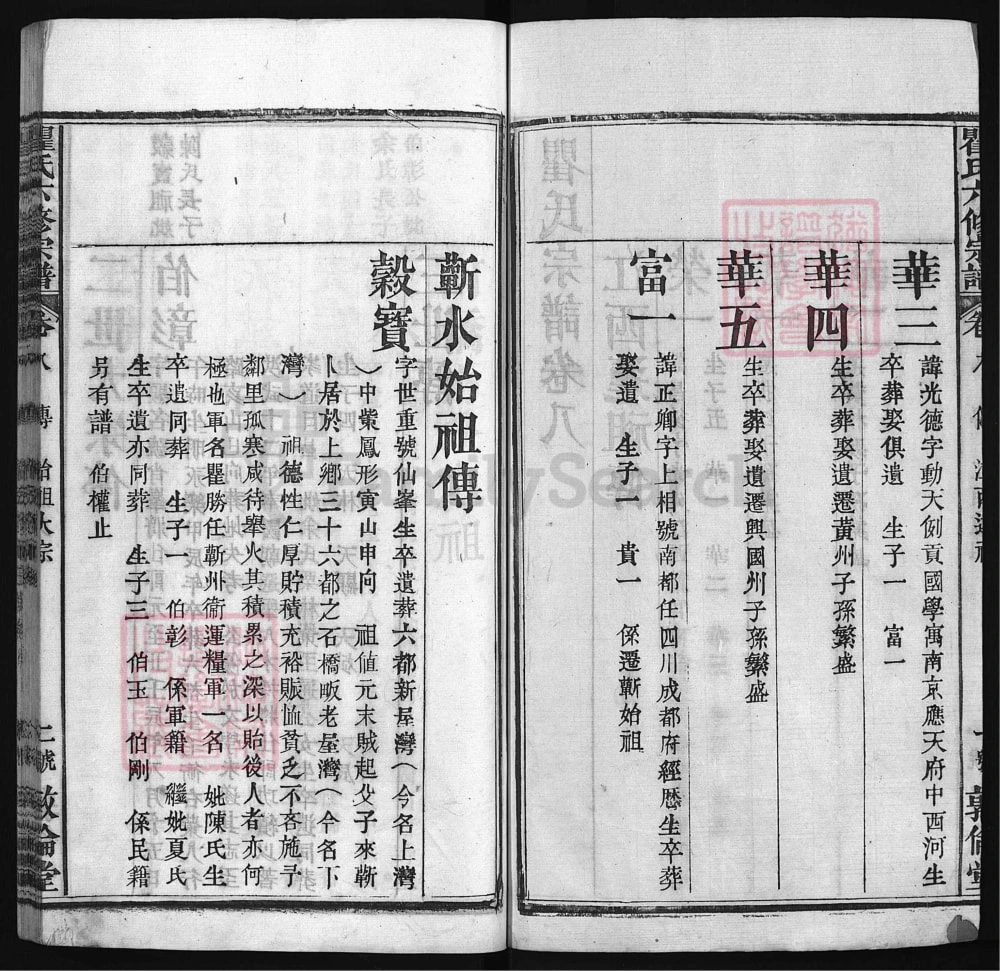 瞿氏六修宗譜
華三
諱光德字動天例貢國學寓南京應天府中西河生
卒葬娶俱遺 生子一 富一
華四
生卒葬娶遺遷黃州子孫繁盛
華五
生卒葬娶遺遷興國州子孫繁盛
富一
諱正卿字上相號南都任四川成都府經歷生卒葬
娶遺 生子一 貴一 係遷蘄始祖
蘄水始祖傳
穀寶
字世重號仙峯生卒遺葬六都新屋灣(今名上灣
)中紫鳳形寅山申向 祖值元末賊起父子來蘄
卜居於上鄉三十六都之石橋畈老屋灣(今名下
灣)祖德性仁厚貯積充裕賑恤貧乏不吝施予
鄰里孤寒咸待舉火其積累之深以貽後人者亦何
極也軍名瞿勝任蘄州衞運糧軍一名 妣陳氏生
卒遺同葬 生子一 伯彰 係軍籍 繼妣夏氏
生卒遺亦同葬 生子三 伯玉 伯剛 係民籍
另有譜 伯權止
瞿氏六修宗譜 卷八 傳 始祖大宗 二號 敦倫堂
FamilySearch